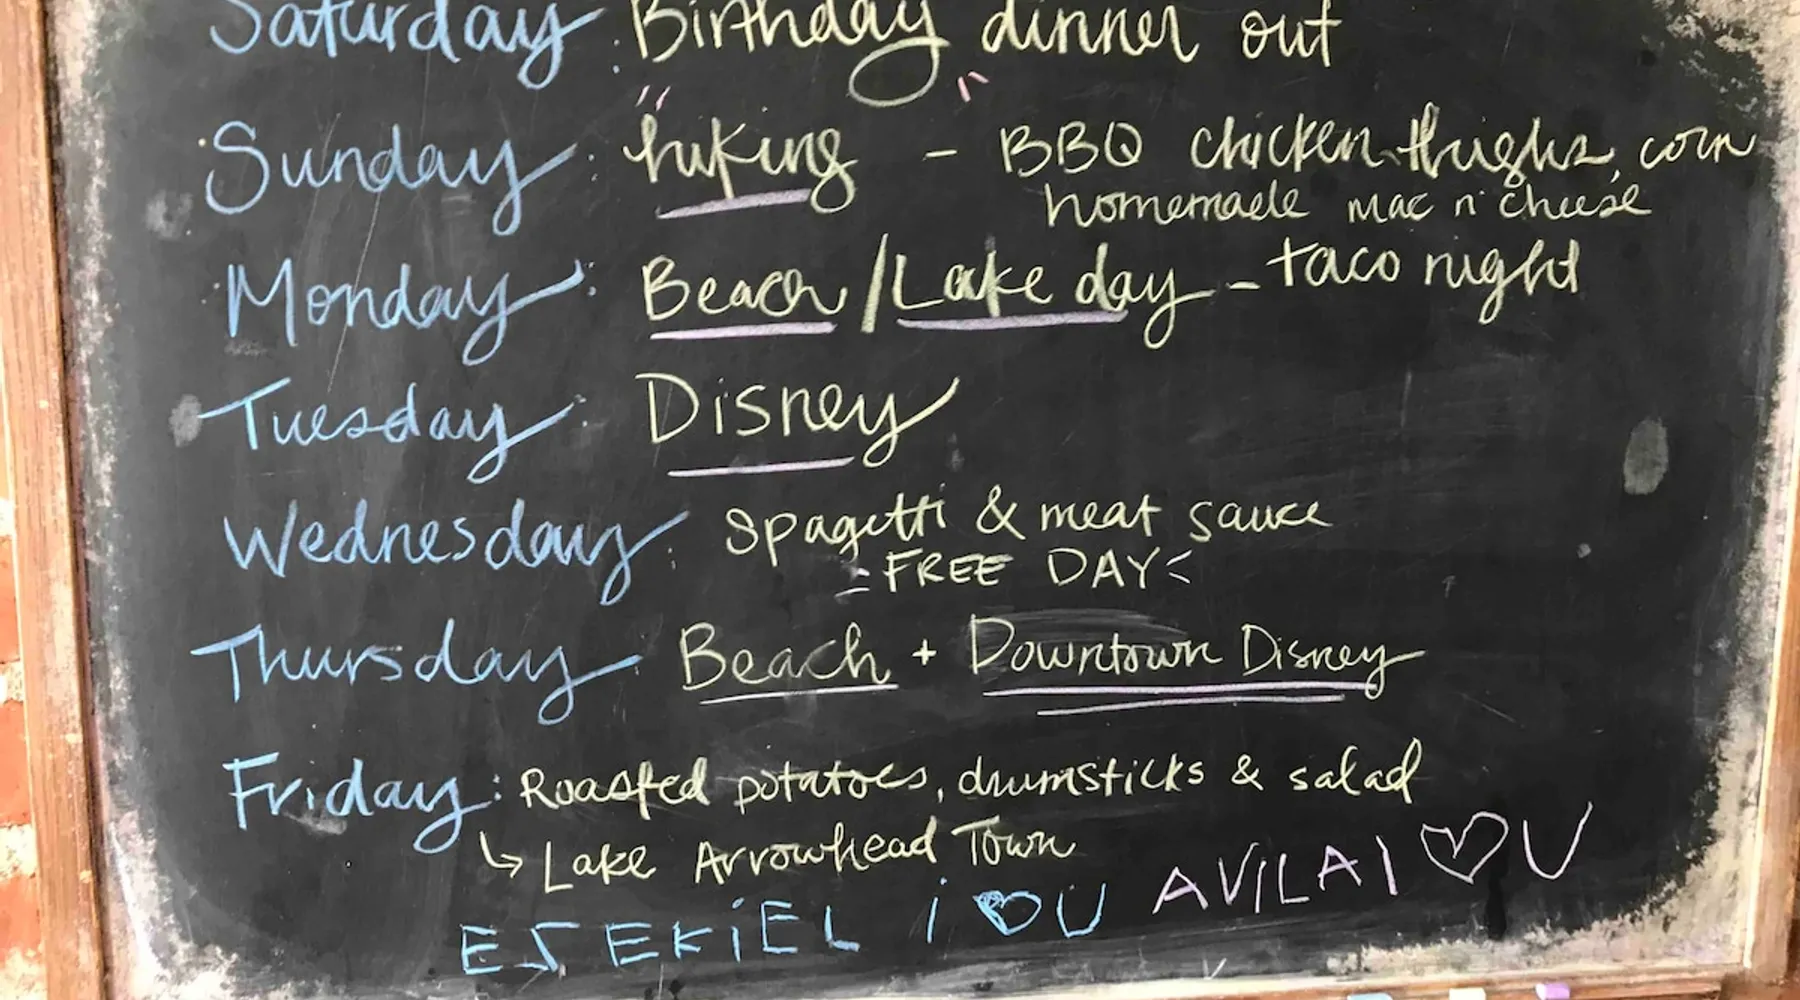 Saturday: Birthday dinner out
Sunday: "hiking" - BBQ chicken thighs, corn
homemade mac n' cheese
Monday: Beach/Lake day - taco night
Tuesday: Disney
Wednesday: Spagetti & meat sauce
FREE DAY
Thursday: Beach + Downtown Disney
Friday: Roasted potatoes, drumsticks & salad
↳ Lake Arrowhead Town
EZEKiEL i ♡ U AVILA I ♡ U